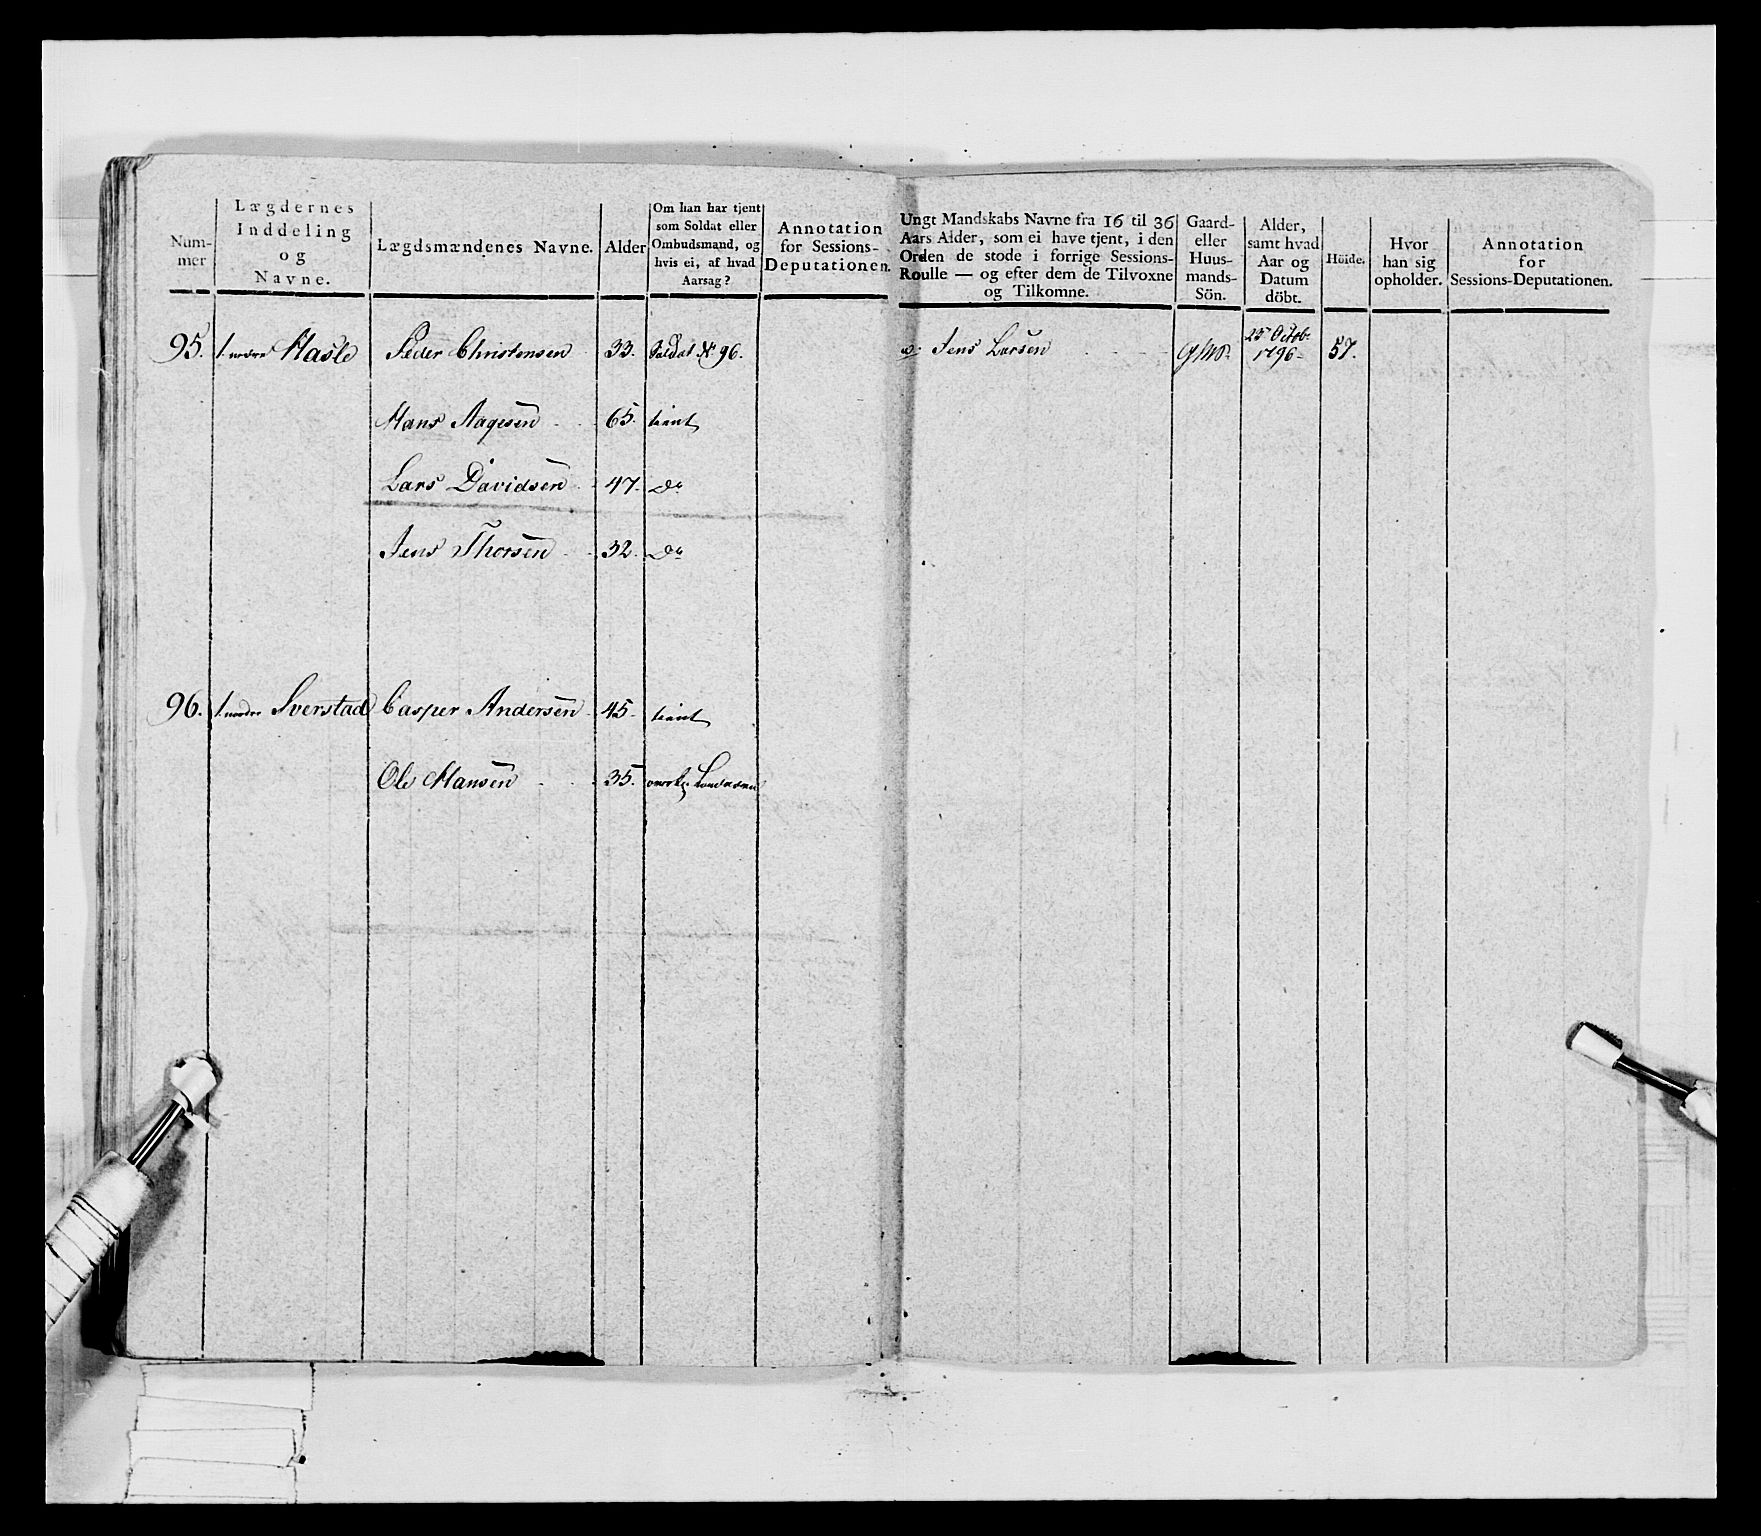 Num-
mer
Lægdernes
Inddeling
og
Navne.
Lægdsmændenes Navne.
Alder
Om han har tjent
som Soldat eller
Ombudsmand, og
hvis ei, af hvad
Aarsag?
Annotation
for Sessions-
Deputationen.
95. 1. nedre Hasle Peder Christensen 33. Soldat No 96.
Hans Aagesen 65. tient
Lars Davidsen 47. Do
Jens Thorsen 32. Do
96. 1. nordre Sverstad Casper Andersen 45. tient
Ole Hansen 35.
Ungt Mandskabs Navne fra 16 til 36
Aars Alder, som ei have tjent, i den
Orden de stode i forrige Sessions-
Roulle — og efter dem de Tilvoxne
og Tilkomne.
Gaard-
eller
Huus-
mands-
Sön.
Alder,
samt hvad
Aar og
Datum
döbt.
Höide.
Hvor
han sig
opholder.
Annotation
for
Sessions-Deputationen.
a. Jens Larsen 23 Octob. 1796 57.